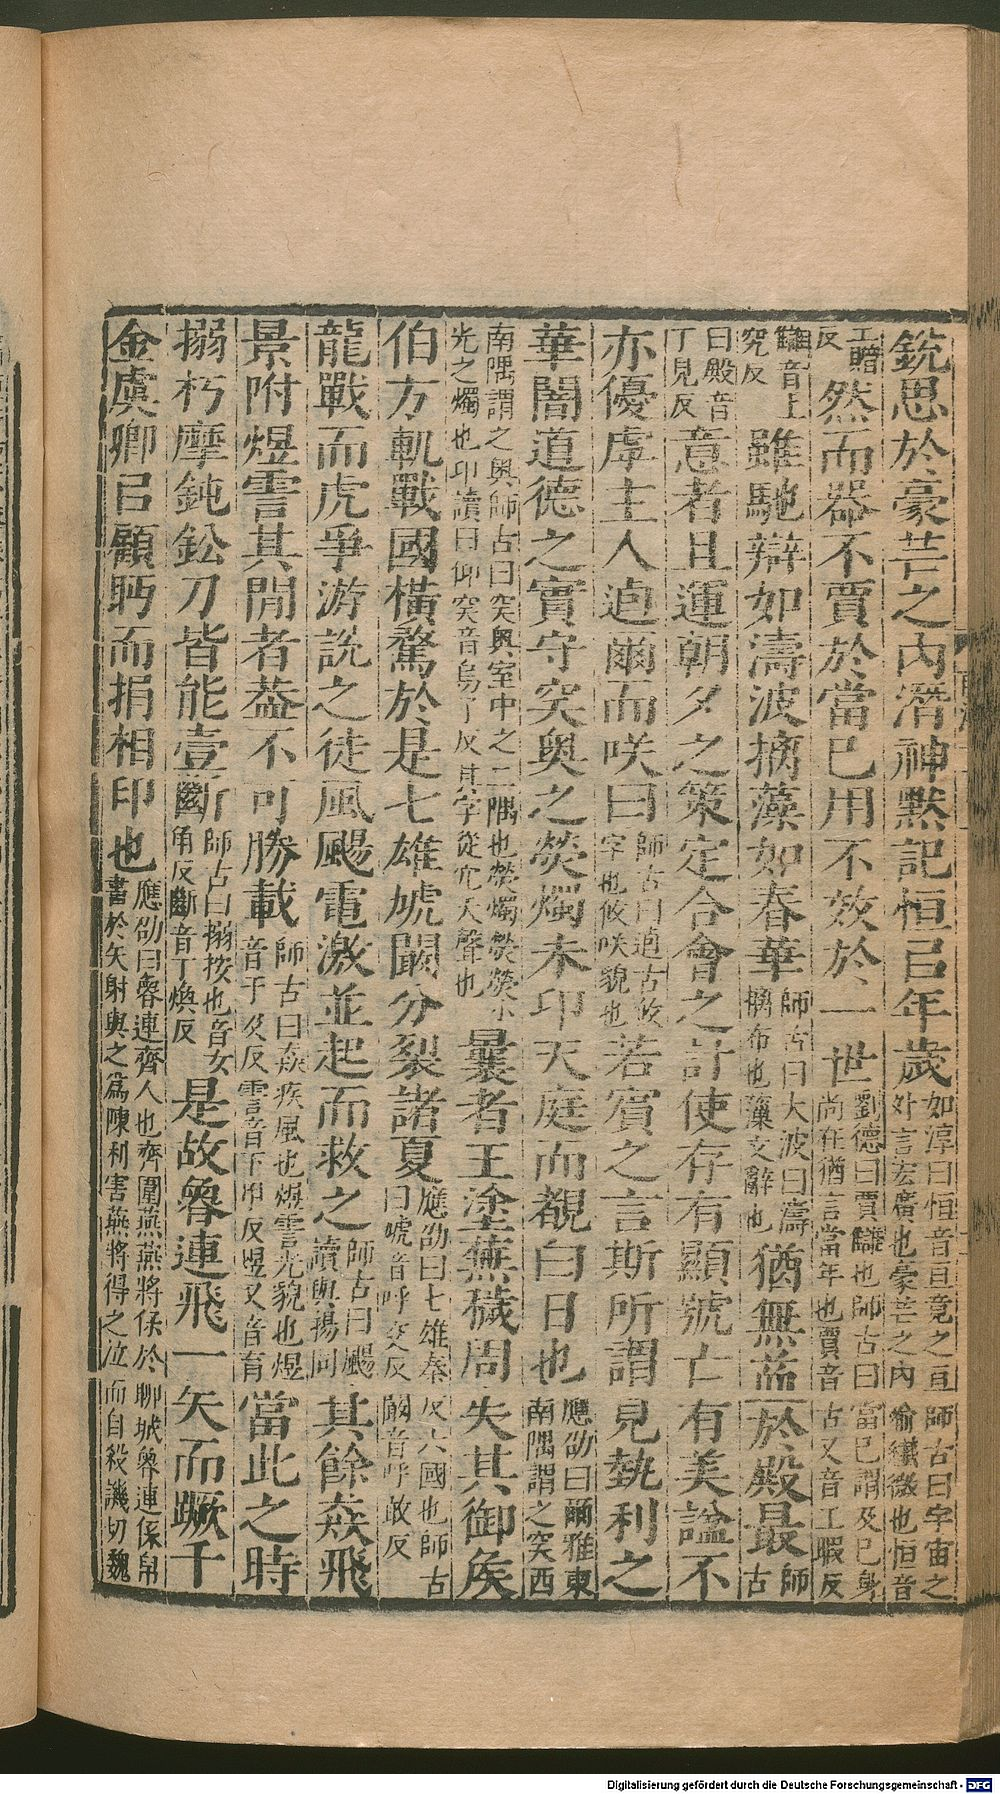 銳思於豪芒之內潛神默記恒㠯年歲如淳曰恒音亘竟之亘師古曰宇宙之外言宏廣也豪芒之內喻纖微也恒音
工贈反然而器不賈於當己用不效於一世劉德曰賈讎也師古曰當己謂及己身尚在猶言當年也賈音古又音工暇反
讎音上究反雖馳辯如濤波摛藻如春華師古曰大波曰濤摛布也藻文辭也猶無益於殿最師古
曰殿音丁見反意者且運朝夕之策定合會之計使存有顯號亡有美諡不
亦優虖主人逌爾而咲曰師古曰逌古攸字也攸咲貌也若賓之言斯所謂見埶利之
華闇道德之實守突奧之熒燭未卬天庭而覩白日也應劭曰爾雅東南隅謂之突西
南隅謂之奧師古曰突奧室中之二隅也熒燭熒熒小光之燭也卬讀曰仰突音烏了反其字從穴夭聲也曩者王塗蕪穢周失其御侯
伯方軌戰國橫騖於是七雄虓闞分裂諸夏應劭曰七雄秦及六國也師古曰虓音呼交反闞音呼敢反
龍戰而虎爭游說之徒風颺電激並起而救之師古曰颺讀與揚同其餘猋飛
景附煜霅其閒者蓋不可勝載師古曰猋疾風也煜霅光貌也煜音于及反霅音下甲反煜又音育當此之時
搦朽摩鈍鈆刀皆能壹斷師古曰搦按也音女角反斷音丁煥反是故魯連飛一矢而蹶千
金虞卿㠯顧眄而捐相印也應劭曰魯連齊人也齊圍燕燕將保於聊城魯連係帛書於矢射與之為陳利害燕將得之泣而自殺譏切魏
Digitalisierung gefördert durch die Deutsche Forschungsgemeinschaft - DFG